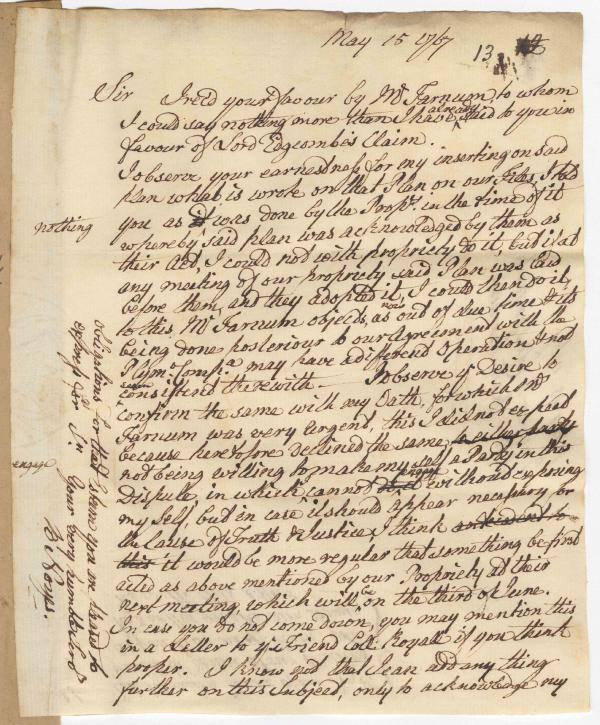 May 15 1767
13 12
Sir I rec'd your favour by Mr Farnum, to whom
I could say nothing more than I have already said to you in
favour of Lord Edgcombe's Claim.
I observe your earnestness for my inserting on said
plan what is wrote on that Plan on our Files, I told
you as it was done by the Prop.rs in the time of it
nothing
whereby said plan was acknowledged by them as
their Act, I could not with propriety do it, but if at
any meeting of our propriety said Plan was laid
before them, and they adopted it, I could than do it,
to this Mr Farnum objects, as out of due time & its
now
being done posterior to our Agreement with the
Plym.o Comp.a may have a different Operation & not
consistent therewith — I observe yr Desire to
confirm the same with my Oath, for which Mr
Farnum was very urgent, this I did not expect
because heretofore declined the same, to either party
not being willing to make my self a Party in this
engage
Dispute, in which I cannot engage without exposing
my Self, but in case it should appear necessary for
the Cause of Truth & Justice, I think
this it would be more regular that something be first
acted as above mentioned by our Propriety at their
next meeting, which will be on the third of June.
In case you do not come down, you may mention this
in a Letter to yr Friend Coll. Royall if you think
proper. I know not that I can add any thing
further on this Subject, only to acknowledge my
obligations for that Esteem you are pleased to
express for Sr. Your very humble Serv.t
B: Noyes.